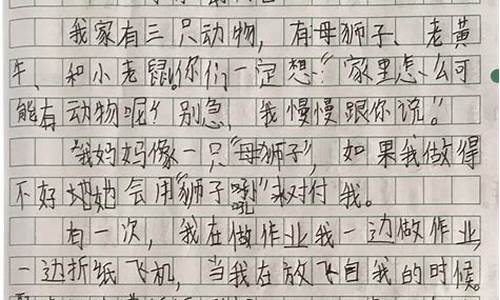 我家有三只动物，有母狮子、老黄
牛、和小老鼠。你们一定想："家里怎么可
能有动物呢？别急，我慢慢跟你说。"
我妈妈像一只"母狮子"，如果我做得
不好她会用"狮子吼"来对付我。
有一次，我在做作业我一边做作业，
一边折纸飞机，当我在放飞自我的时候。